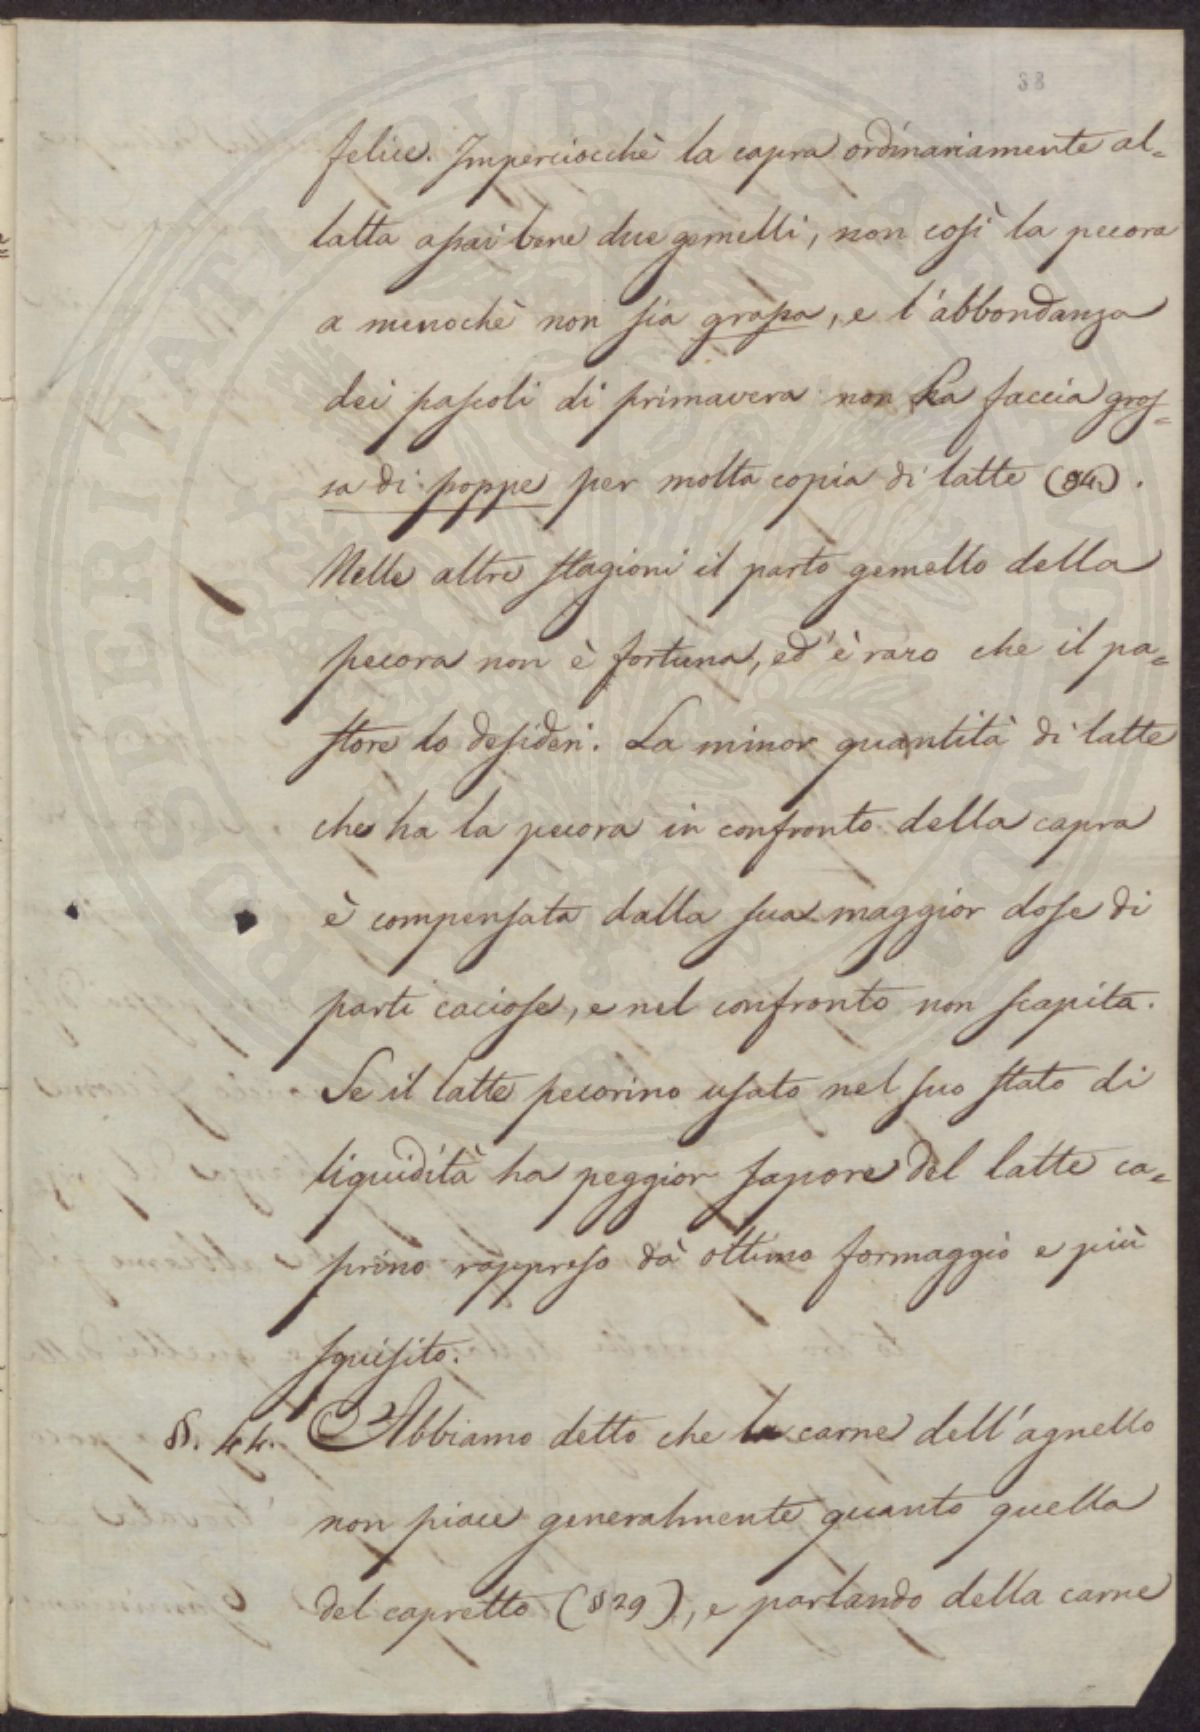 38
felice. Imperciocchè la capra ordinariamente al=
latta assai bene due gemelli, non così la pecora
a menochè non sia grassa, e l'abbondanza
dei pascoli di primavera non la faccia gros=
sa di poppe per molta copia di latte (84).
Nelle altre stagioni il parto gemello della
pecora non è fortuna, ed è raro che il pa=
store lo desideri. La minor quantità di latte
che ha la pecora in confronto della capra
è compensata dalla sua maggior dose di
parti caciose, e nel confronto non scapita.
Se il latte pecorino usato nel suo stato di
liquidità ha peggior sapore del latte ca=
prino rappreso dà ottimo formaggio e più
squisito.
§. 44. Abbiamo detto che la carne dell'agnello
non piace generalmente quanto quella
del capretto (§29), e parlando della carne
PROSPERITATI PUBLICAE AUGENDAE